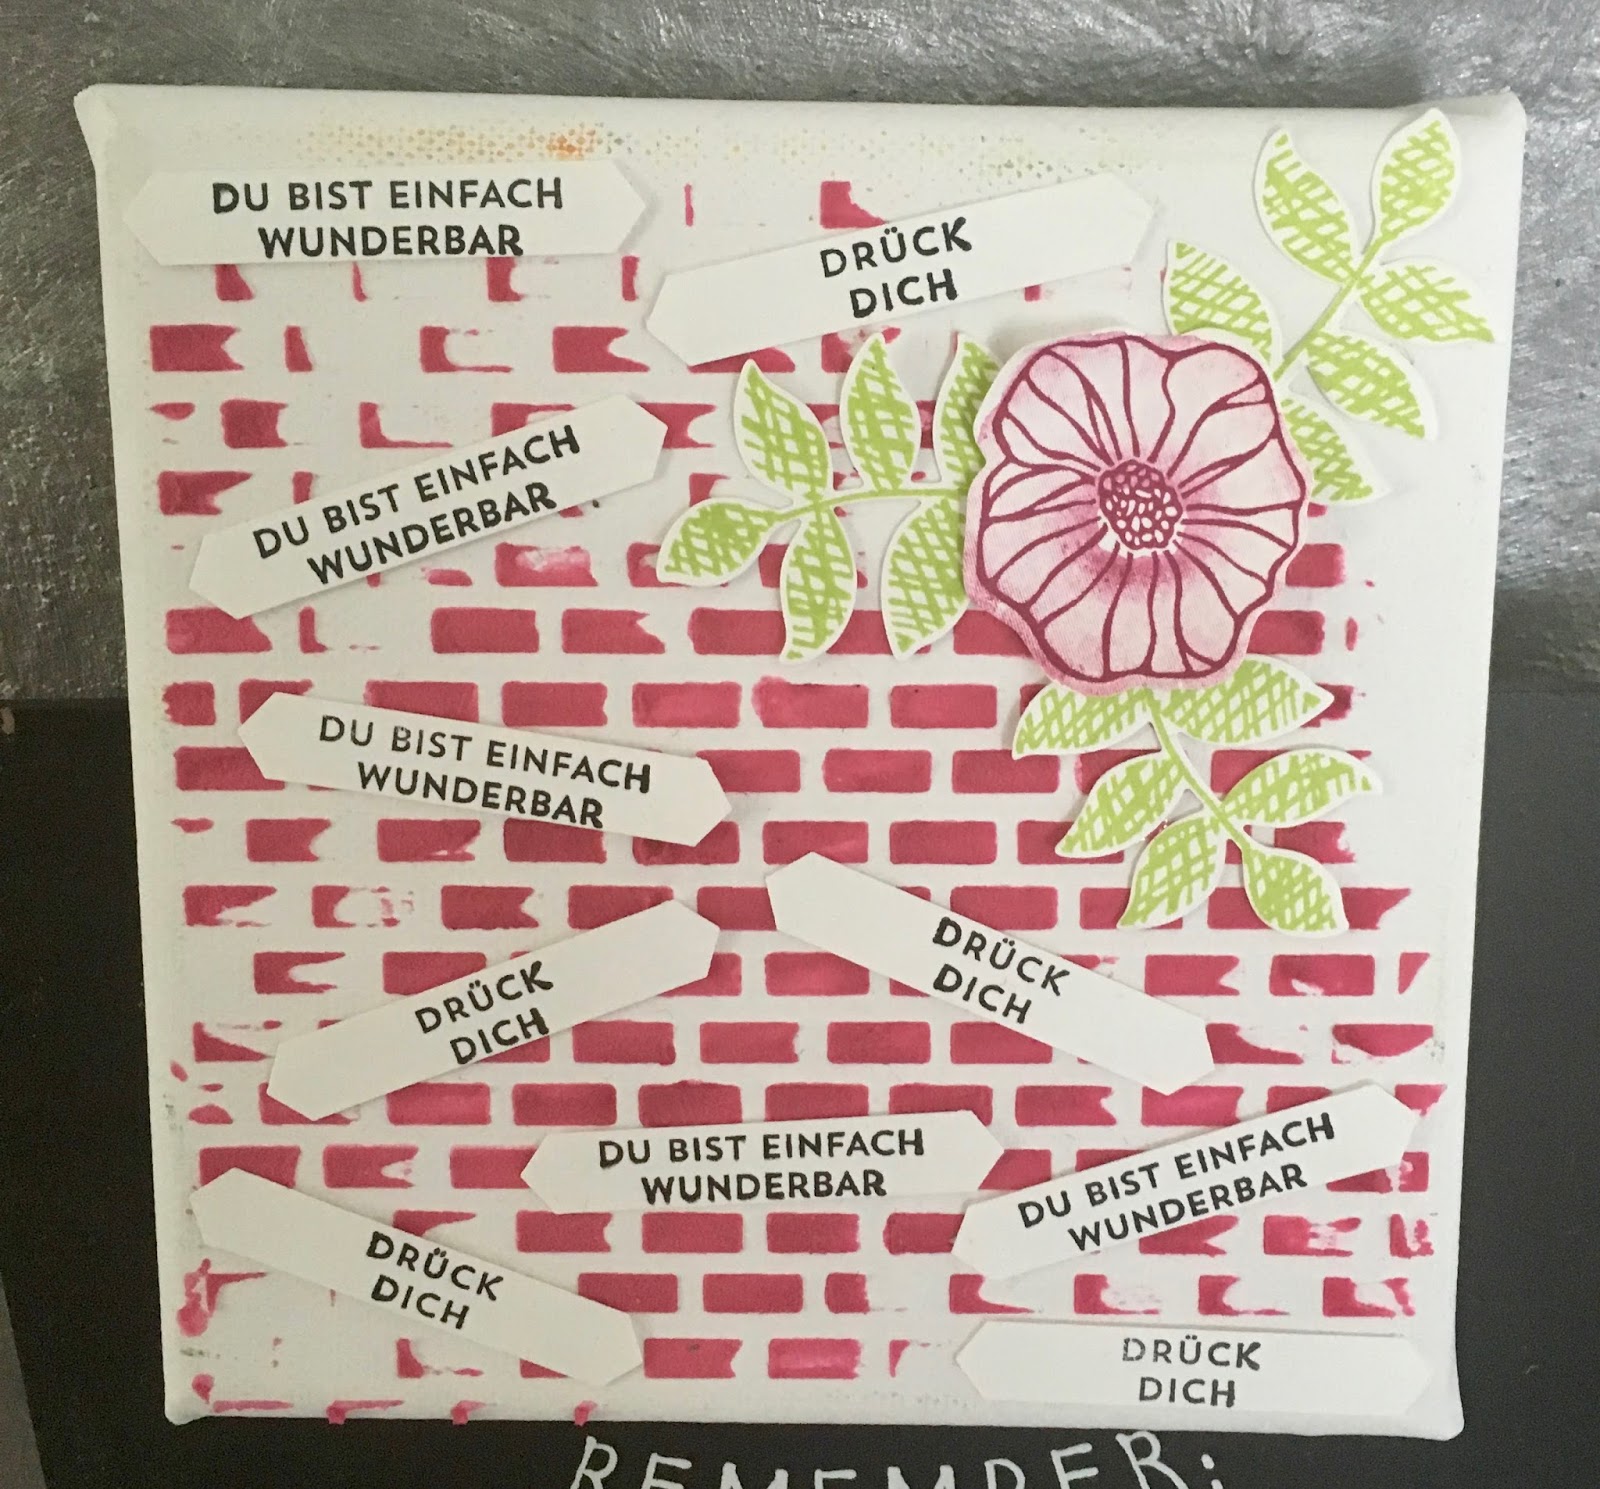 DU BIST EINFACH
WUNDERBAR
DRÜCK
DICH
DU BIST EINFACH
WUNDERBAR
DU BIST EINFACH
WUNDERBAR
DRÜCK
DICH
DRÜCK
DICH
DU BIST EINFACH
WUNDERBAR
DU BIST EINFACH
WUNDERBAR
DRÜCK
DICH
DRÜCK
DICH
REMEMBER: